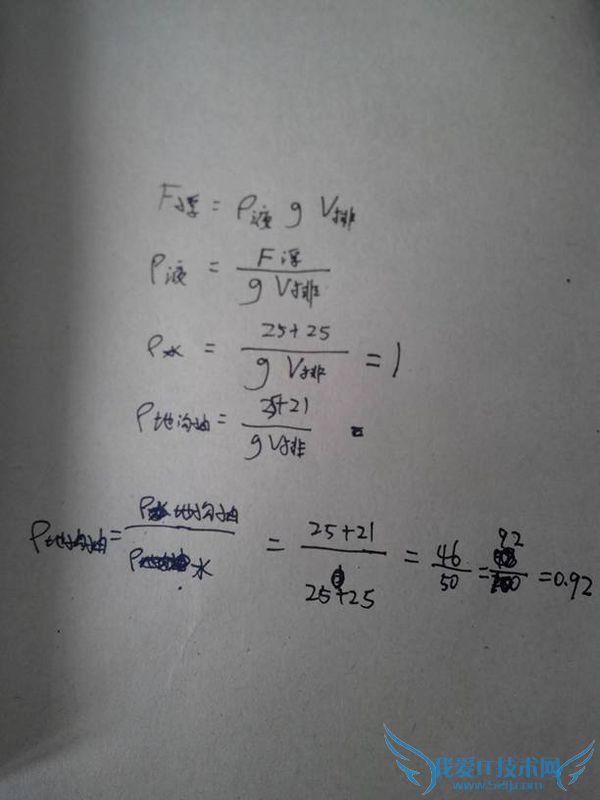 F浮 = ρ液 g V排
ρ液 = F浮 / g V排
ρ水 = 25+25 / g V排 = 1
ρ地沟油 = 25+21 / g V排 =
ρ地沟油 = ρ地沟油 / ρ水 = 25+21 / 25+25 = 46 / 50 = 92 / 100 = 0.92
我爱IT技术网
www.52ij.com